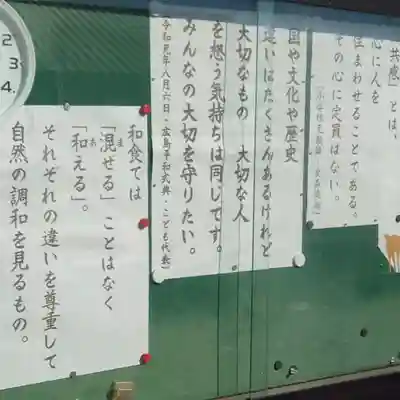 共感」とは、
心に人を
住まわせることである。
その心に定員はない。
国や文化や歴史
違いはたくさんあるけれど
大切なもの　大切な人
を想う気持ちは同じです。
みんなの大切を守りたい。
令和元年八月六日・広島平和式典・こども代表)
和食では
「混ぜる」ことはなく
ま
「和える」。
あ
それぞれの違いを尊重して
自然の調和を見るもの。
2
3
4